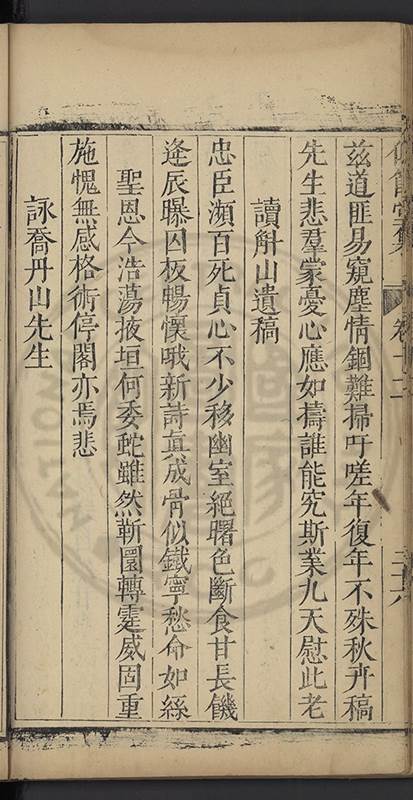 兹道匪易窺塵情錮難掃吁嗟年復年不殊秋卉稿
先生悲羣蒙憂心應如擣誰能究斯業九天慰此老
讀斛山遺稿
忠臣瀕百死貞心不少移幽室絕曙色斷食甘長饑
逢辰曝囚板暢懷哦新詩真成骨似鐵寧愁命如絲
聖恩今浩蕩掖垣何委虵雖然靳園轉霆威固重
施愧無感格術停閣亦焉悲
詠喬丹山先生